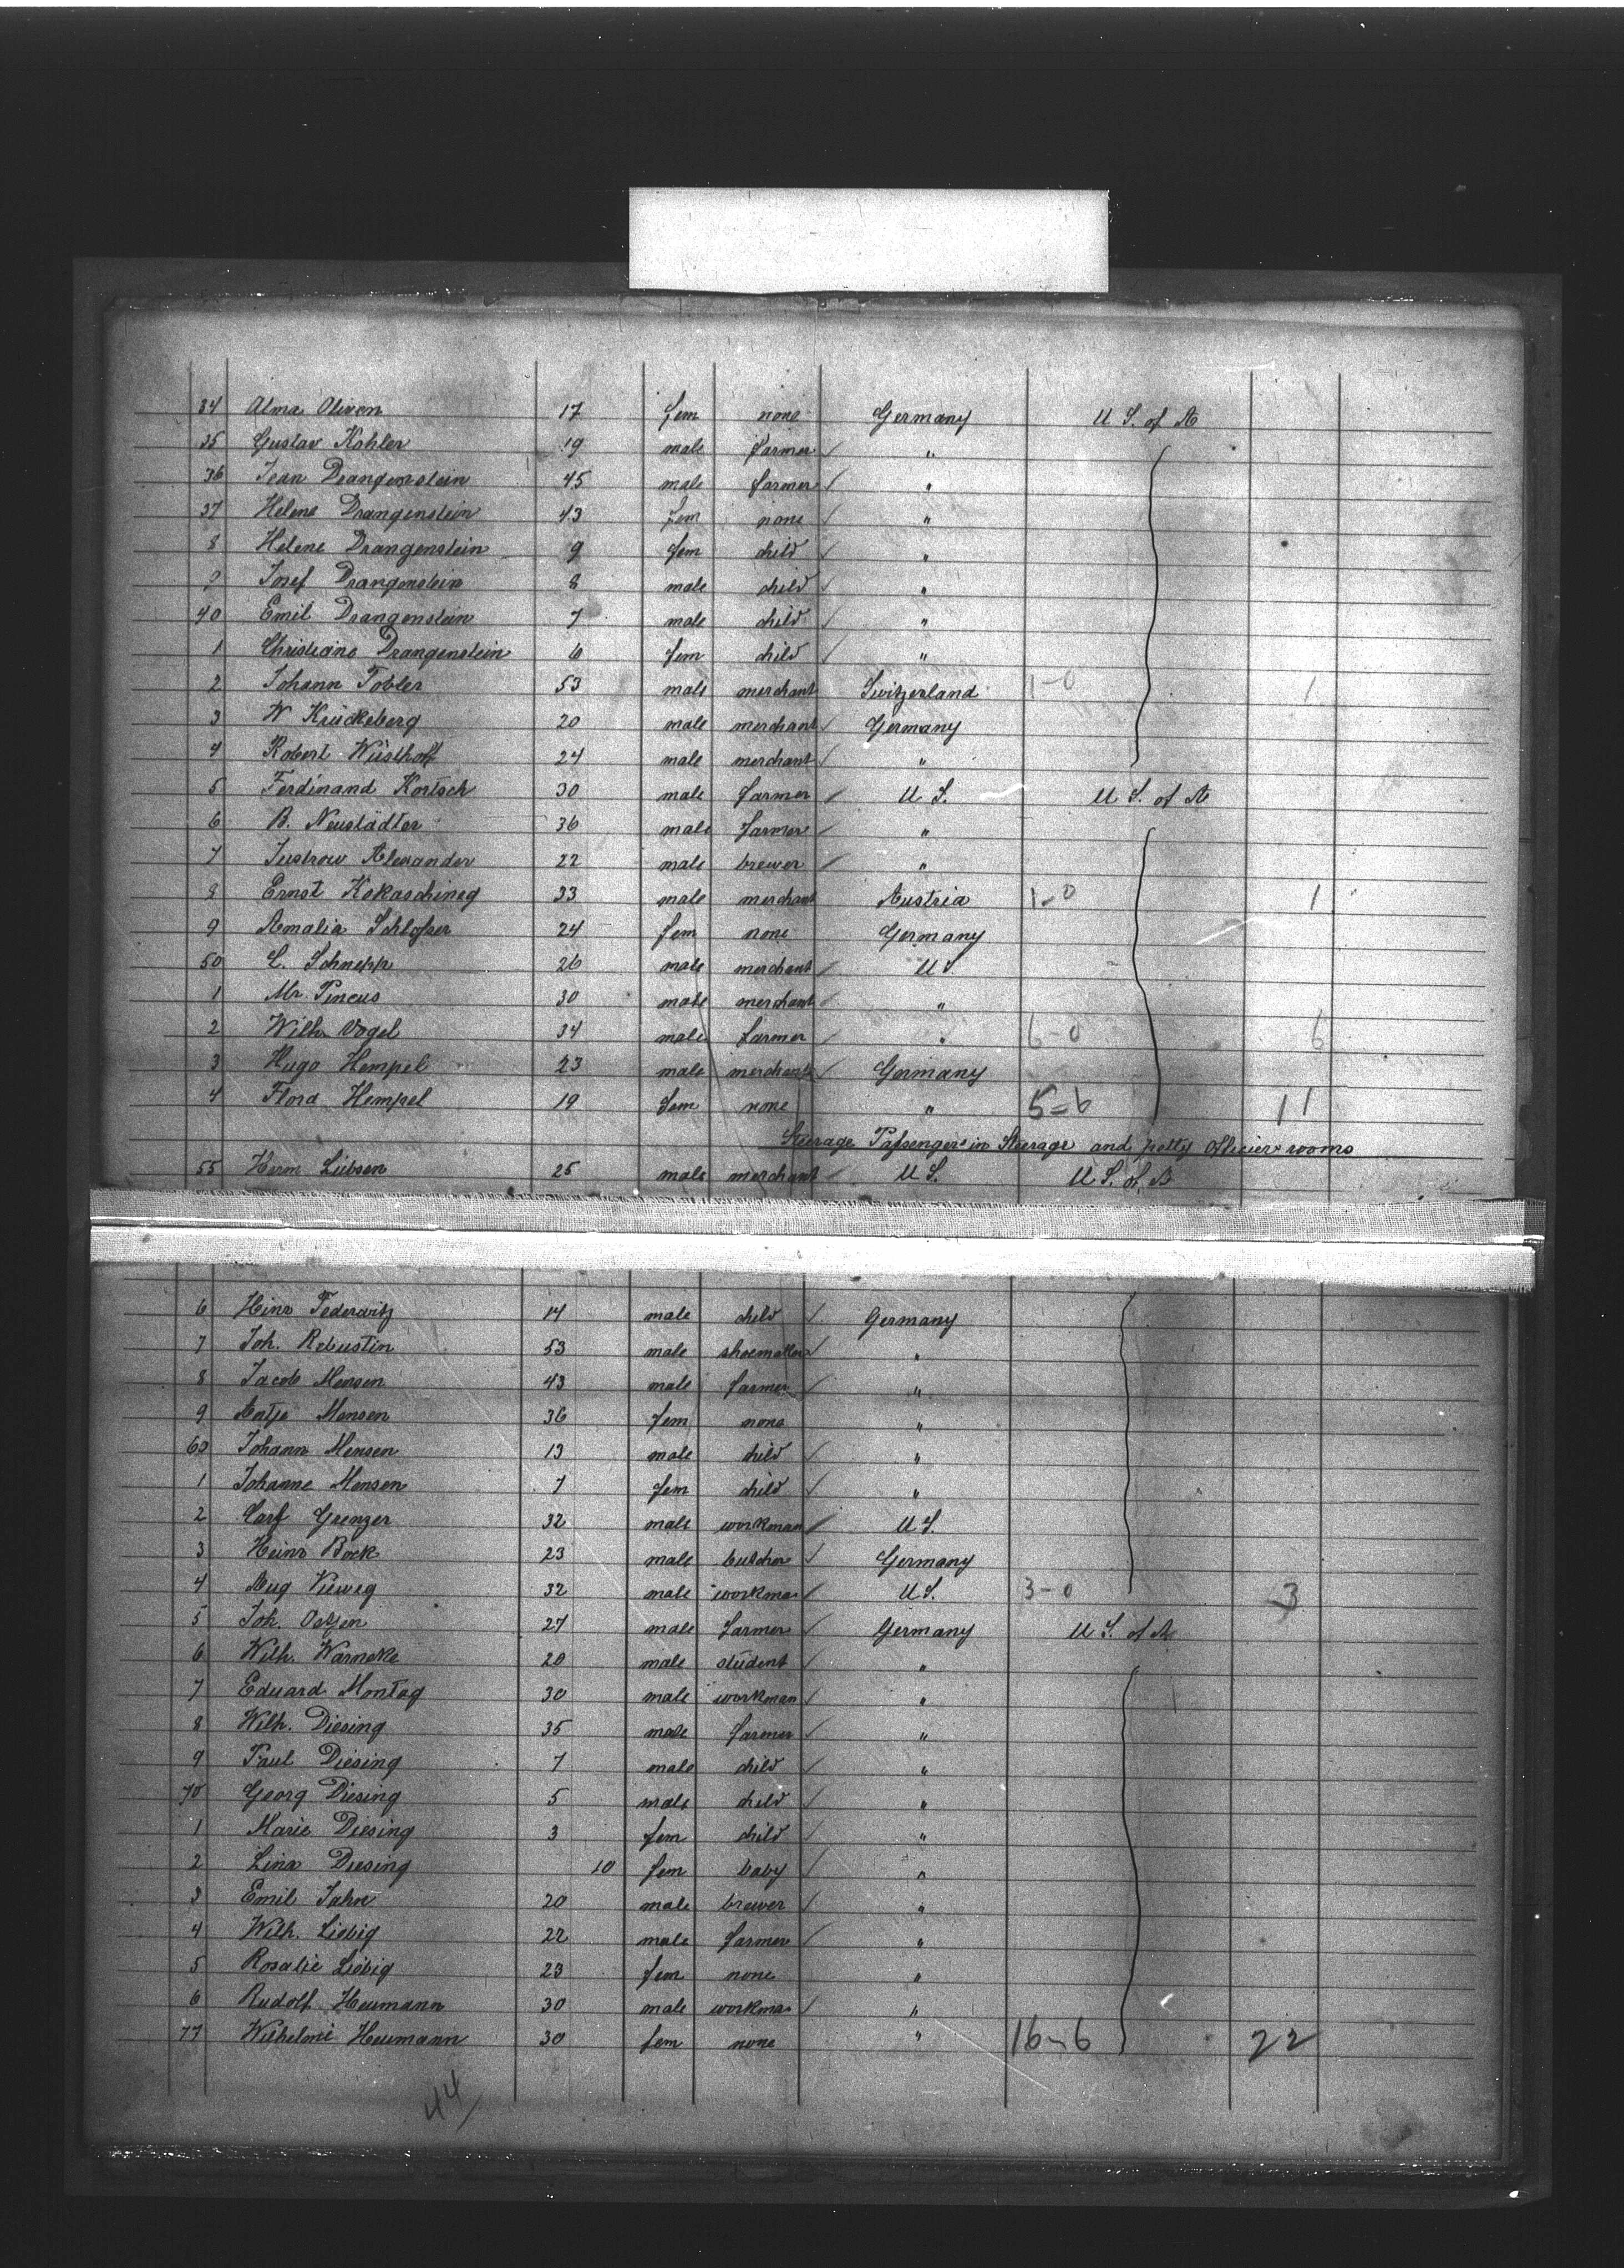 34 Alma Olixon 17 fem none Germany U S. of A
35 Gustav Kohler 19 male farmer "
36 Jean Drangenstein 45 male farmer "
37 Helene Drangenstein 43 fem none "
8 Helene Drangenstein 9 fem child "
9 Josef Drangenstein 8 male child "
40 Emil Drangenstein 7 male child "
1 Christiane Drangenstein 6 fem child "
2 Johann Tobler 53 male merchant Switzerland 1-0 1
3 W Krückeberg 20 male merchant Germany
4 Robert Wüsthoff 24 male merchant "
5 Ferdinand Kortsch 30 male farmer U S. U S. of A
6 B. Neustädter 36 male farmer "
7 Justrow Alexander 22 male brewer "
8 Ernst 33 male merchant Austria 1-0 1
9 Amalia Schlosser 24 fem none Germany
50 L. Schnepp 26 male merchant U S.
1 Mr. Pincus 30 male merchant "
2 Wilh. Vogel 34 male farmer " 6-0 6
3 Hugo Hempel 23 male merchant Germany
4 Flora Hempel 19 fem none " 5=6 11
Steerage Passengers in Steerage and petty Officier rooms
55 Herm Lübsen 25 male merchant U S. U S. of A
6 Hinr Federwitz 14 male child Germany
7 Joh. Rebustin 53 male shoemaker "
8 Jacob Mensen 43 male farmer "
9 Antje Mensen 36 fem none "
60 Johann Mensen 13 male child "
1 Johanne Mensen 7 fem child "
2 Carl Grenzer 32 male workman U S.
3 Heinr Bock 23 male butcher Germany
4 Aug Vieweg 32 male workman U S. 3-0 3
5 Joh. 27 male farmer Germany U S. of A
6 Wilh. Warneke 20 male student "
7 Eduard Montag 30 male workman "
8 Wilh. Diesing 35 male farmer "
9 Paul Diesing 7 male child "
70 Georg Diesing 5 male child "
1 Marie Diesing 3 fem child "
2 Lina Diesing 10 fem baby "
3 Emil Jahn 20 male brewer "
4 Wilh. Liebig 22 male farmer "
5 Rosalie Liebig 23 fem none "
6 Rudolf Heumann 30 male workman "
77 Wilhelmie Heumann 30 fem none " 16-6 22
44